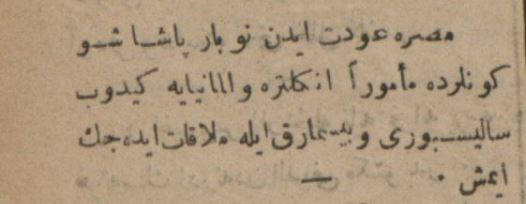 مصره عودت ایدن نوبار پاشا شو
کونلرده مأموراً انکلتره والمانیایه کیدوب
سالیسبوری وبیسمارق ایله ملاقات ایده‌جك
ایمش .